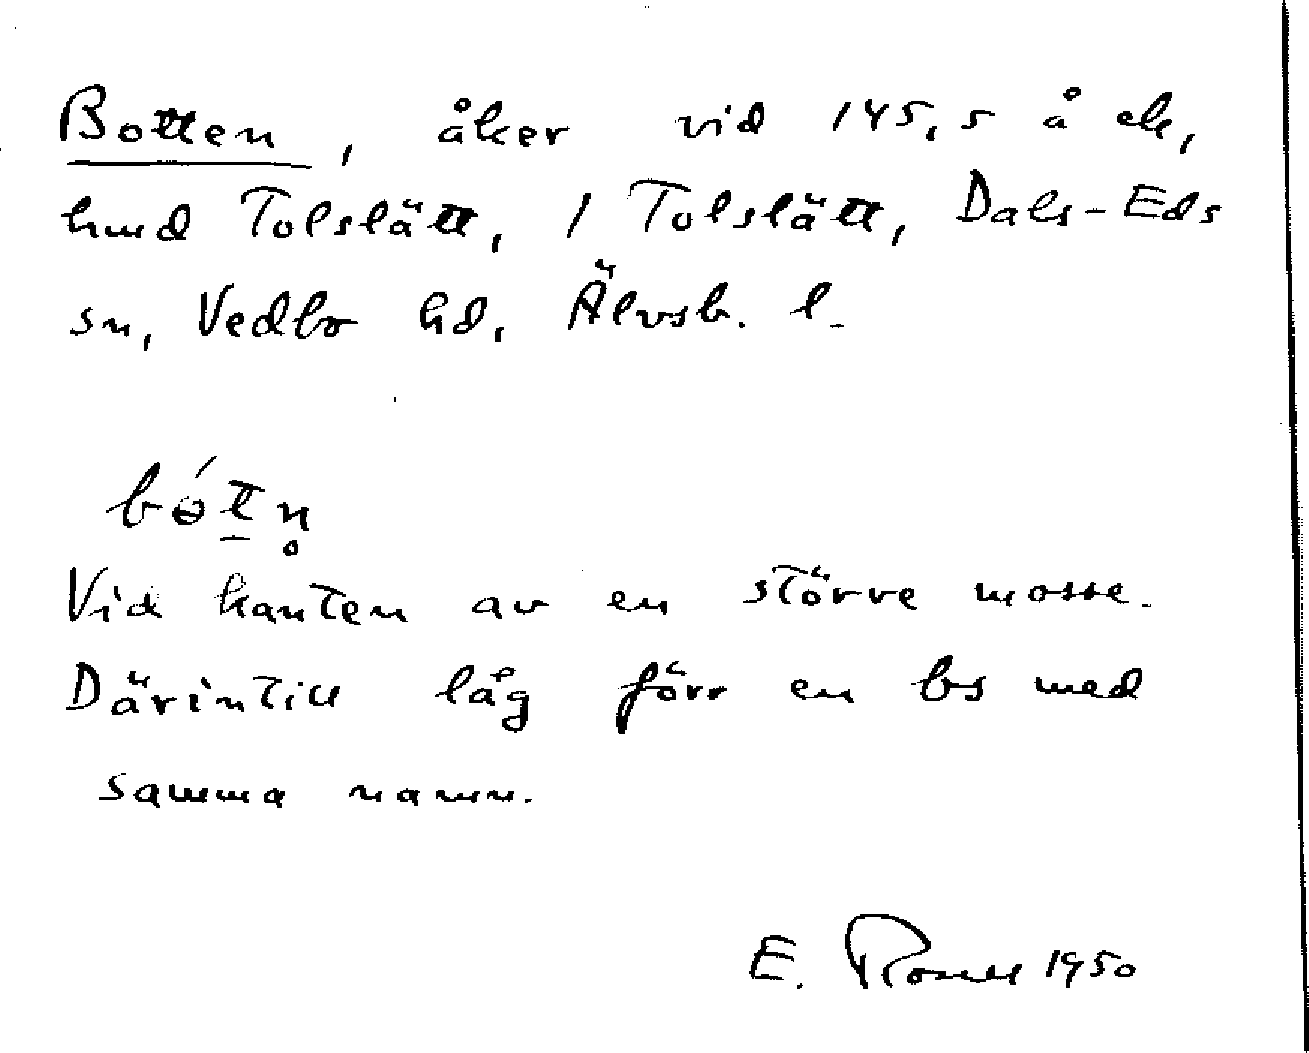 Botten, åker vid 145,5 å ek,
hmd Tolslätt, 1 Tolslätt, Dals-Eds
sn, Vedbo hd, Älvsb. l.
bɵ́t̠n̥
Vid kanten av en större mosse.
Därintill låg förr en bs med
samma namn.
E. 1950